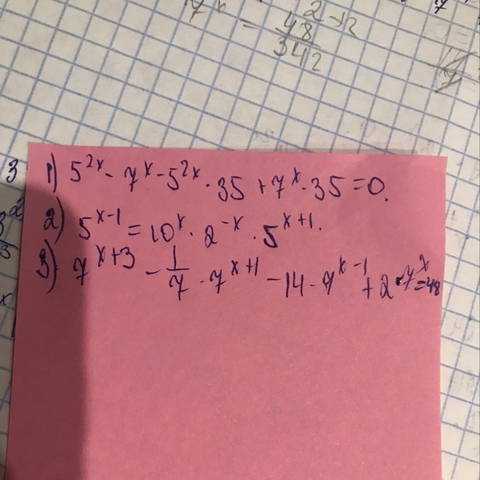 7ˣ = 48² + 2
342
1) 5²ˣ - 7ˣ - 5²ˣ · 35 + 7ˣ · 35 = 0.
2) 5ˣ⁻¹ = 10ˣ · 2⁻ˣ · 5ˣ⁺¹.
3) 7ˣ⁺³ - 1/7 · 7ˣ⁺¹ - 14 · 7ˣ⁻¹ + 2 · 7ˣ = 48